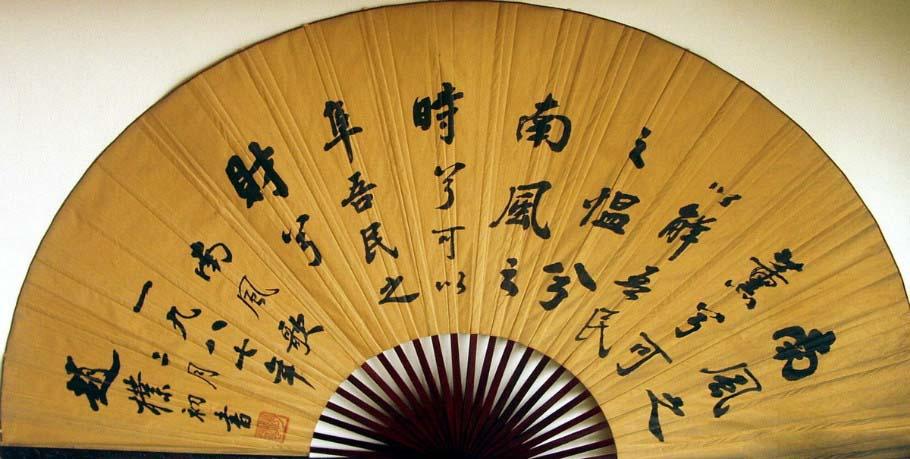 南風之
薰兮可
以解吾民
之愠兮
南風之
時兮可以
阜吾民之
財兮
南風歌
一九八年
二月
趙樸初書